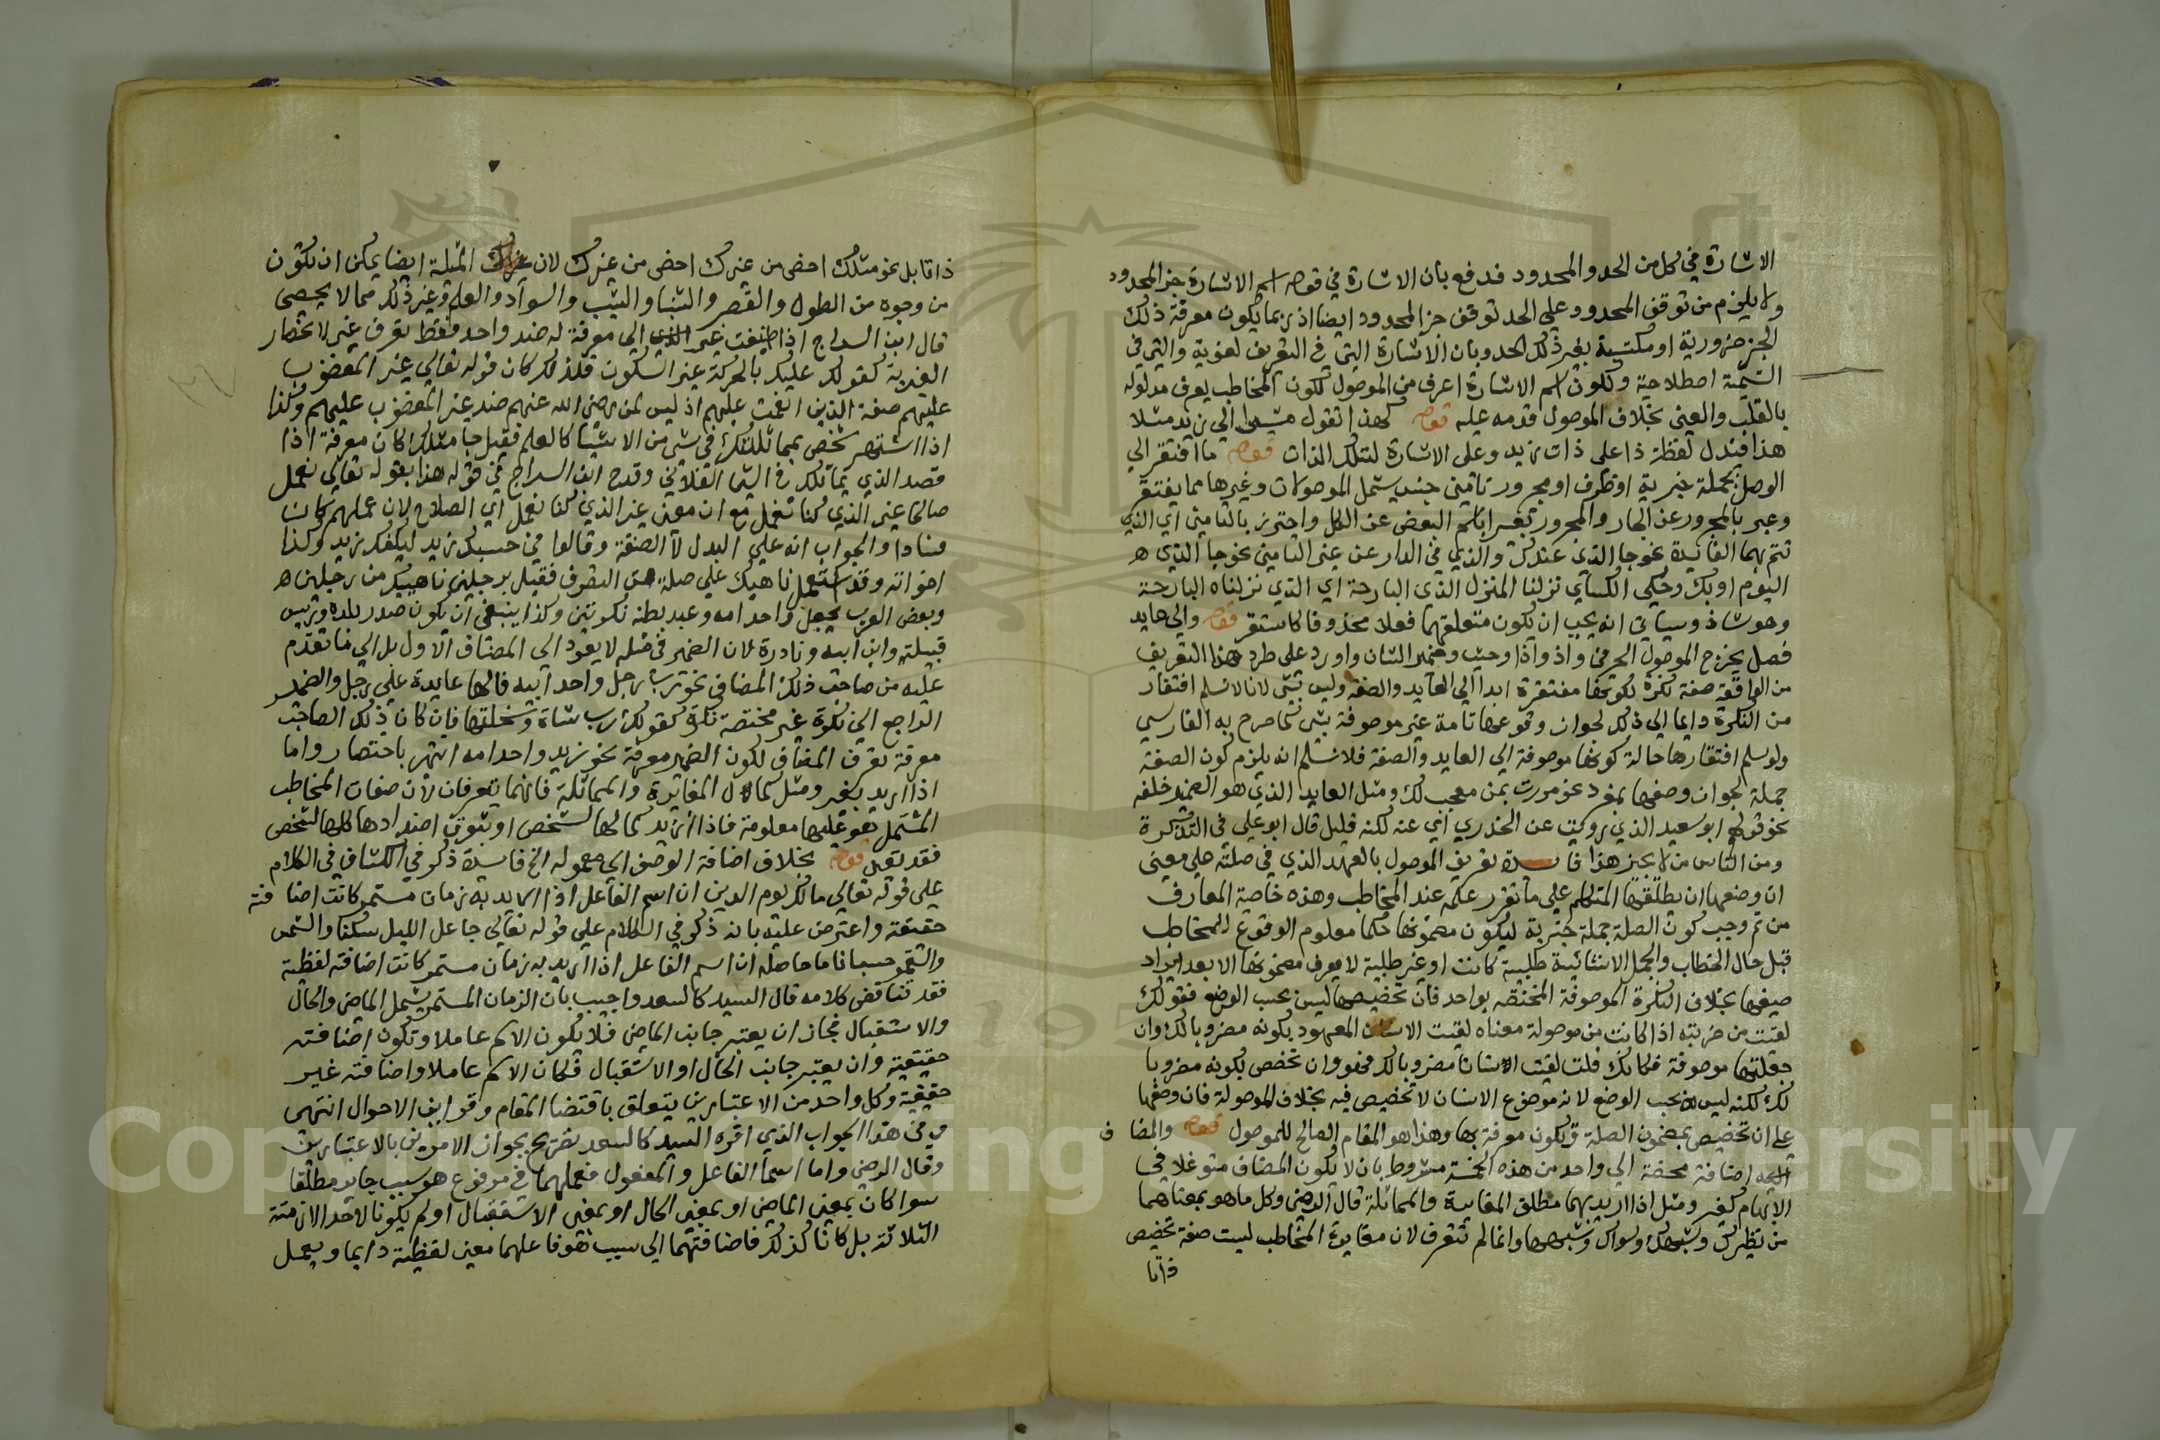 الاشارة في كل من الحد والمحدود فدفع بان الاشارة في قوله اسم الاشارة جز المحدود
ولا يلزم من توقف المحدود على الحد توقف جز المحدود ايضا اذ ربما يكون معرفة ذلك
الجز ضرورية او مكتسبة بغير ذلك الحد وبان الاشارة التي في التعريف لغوية والتي في
التسمية اصطلاحية ولكون اسم الاشارة اعرف من الموصول لكون المخاطب يعرف مدلوله
بالقلب والعين بخلاف الموصول قدمه عليه قوله كهذا تقول مشيرا الى زيد مثلا
هذا فتدل لفظة ذا على ذات زيد وعلى الاشارة لتلك الذات قوله ما افتقر الى
الوصل بجملة خبرية او ظرف او مجرور تامين جنس يشمل الموصولات وغيرها مما يفتقر
وعبر بالمجرور عن الجار والمجرور تعبيرا باسم البعض عن الكل واحترز بالتامين اي الذي
تتم بهما الفائدة نحو جا الذي عندك والذي في الدار عن غير التامين نحو جا الذي
اليوم او بك وحكى الكساي نزلنا المنزل الذي البارحة اي الذي نزلناه البارحة
وهو شاذ وسياتي انه يجب ان يكون متعلقهما فعلا محذوفا كاستقر قوله والى عايد
فصل يخرج الموصول الحرفي واذ واذا وحيث وضمير الشان واورد على طرد هذا التعريف
من الواقعة صفة نكرة لكونها مفتقرة ابدا الى العايد والصفة وليس بشي لانا لا نسلم افتقار
من النكرة دايما الى ذلك لجواز وقوعها تامة غير موصوفة بشي كما صرح به الفارسي
ولو سلم افتقارها حالة كونها موصوفة الى العايد والصفة فلا نسلم انه يلزم كون الصفة
جملة لجواز وصفها بمفرد نحو مررت بمن معجب لك ومثل العايد الذي هو الضمير خلفه
نحو قولهم ابو سعيد الذي رويت عن الخدري اي عنه لكنه قليل قال ابو علي في التذكرة
ومن الناس من لا يجيز هذا فايدة تعريف الموصول بالعهد الذي في صلته على معنى
ان وضعها ان يطلقها المتكلم على ما تقرر علمه عند المخاطب وهذه خاصة المعارف
من ثم وجب كون الصلة جملة خبرية ليكون مضمونها حكما معلوم الوقوع للمخاطب
قبل حال الخطاب والجمل الانشائية طلبية كانت او غير طلبية لا يعرف مضمونها الا بعد ايراد
صيغها بخلاف النكرة الموصوفة المختصة بواحد فان تخصيصها ليس بحسب الوضع فقولك
لقيت من ضربته اذا كانت من موصولة معناه لقيت الانسان المعهود بكونه مضروبا لك وان
جعلتها موصوفة فكانك قلت لقيت انسانا مضروبا لك فهو وان تخصص بكونه مضروبا
لك لكنه ليس بحسب الوضع لانه موضوع لانسان لا تخصيص فيه بخلاف الموصولة فان وضعها
على ان تخصص بمضمون الصلة وتكون معرفة بها وهذا هو المقام الصالح للموصول قوله والمضاف
اضافة محضة الى واحد من هذه الخمسة مشروط بان لا يكون المضاف متوغلا في
الابهام كغير ومثل اذا اريد بهما مطلق المغايرة والمماثلة قال الرضي وكل ما هو بمعناهما
من نظيرك وشبهك وسواك وشبهها وانما لم تتعرف لان مغايرة المخاطب ليست صفة تخصص
ذاتا
ذاتا بل نحو مثلك اخص من غيرك اخص من غيرك لان المثلية ايضا يمكن ان تكون
من وجوه من الطول والقصر والشباب والشيب والسواد والعلم وغير ذلك مما لا يحصى
قال ابن السراج اذا اضيفت غير الى معرفة له ضد واحد فقط تعرف غير لانحصار
الغيرية كقولك عليك بالحركة غير السكون فلذلك كان قوله تعالى غير المغضوب
عليهم صفة الذين انعمت عليهم اذ ليس لمن رضي الله عنهم ضد غير المغضوب عليهم وكذا
اذا اشتهر شخص بمماثلتك في شي من الاشيا كالعلم فقيل جا مثلك كان معرفة اذا
قصد الذي يماثلك في الشي الفلاني وقدح ابن السراج في قوله هذا بقوله تعالى نعمل
صالحا غير الذي كنا نعمل مع ان معنى غير الذي كنا نعمل اي الصلاح لان عملهم كان
فسادا والجواب انه على البدل لا الصفة وقالوا في حسبك زيد ليكفك زيد وكذا
اخواته وقد استعمل ناهيك على صلة من التصرف فقيل برجلين ناهييك من رجلين
وبعض العرب يجعل واحد امه وعبد بطنه نكرتين وكذا ينبغي ان يكون صدر بلده ورئيس
قبيلته وابن ابيه ونادرة لان الضمير في مثله لا يعود الى المضاف الاول بل الى ما تقدم
عليه من صاحب ذلك المضاف نحو رب رجل واحد ابيه فالها عايدة على رجل والضمير
الراجع الى نكرة غير مختصة نكرة كقولك رب شاة وسخلتها فان كان ذلك الصاحب
معرفة تعرف المضاف لكون الضمير معرفة نحو زيد واحد امه انتهى باختصار واما
اذا اريد بغير ومثل كمال المغايرة والمماثلة فانهما يتعرفان لان صفات المخاطب
المشتمل هو عليها معلومة فاذا اريد كمالها لشخص او ثبوت اضدادها كلها لشخص
فقد تعين قوله بخلاف اضافة الوصف الى معموله الخ فايدة ذكر في الكشاف في الكلام
على قوله تعالى مالك يوم الدين ان اسم الفاعل اذا اريد به زمان مستمر كانت اضافته
حقيقة واعترض عليه بانه ذكر في الكلام على قوله تعالى جاعل الليل سكنا والشمس
والقمر حسبانا ما حاصله ان اسم الفاعل اذا اريد به زمان مستمر كانت اضافته لفظية
فقد تناقض كلامه قال السيد كالسعد واجيب بان الزمان المستمر يشمل الماضي والحال
والاستقبال فجاز ان يعتبر جانب الماضي فلا يكون الاسم عاملا وتكون اضافته
حقيقية وان يعتبر جانب الحال او الاستقبال فكان الاسم عاملا واضافته غير
حقيقية وكل واحد من الاعتبارين يتعلق باقتضا المقام وقراين الاحوال انتهى
وفي هذا الجواب الذي اقره السيد كالسعد تصريح بجواز الامرين بالاعتبارين
وقال الرضي واما اسما الفاعل والمفعول فعملهما في مرفوع هو سبب جايز مطلقا
سوا كان بمعنى الماضي او بمعنى الحال او بمعنى الاستقبال او لم يكونا لاحد الازمنة
الثلاثة بل كانا كذلك فاضافتهما الى سبب هو فاعلهما معنى لفظية دايما ويعمل